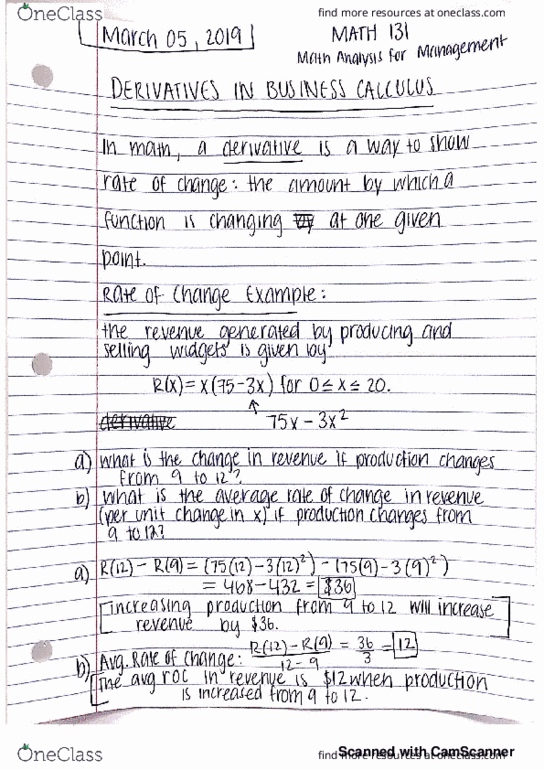 OneClass
find more resources at oneclass.com
March 05, 2019
MATH 131
Math Analysis for Management
DERIVATIVES IN BUSINESS CALCULUS
In math, a derivative is a way to show
rate of change: the amount by which a
function is changing by at one given
point.
Rate of Change Example:
the revenue generated by producing and
selling widgets is given by
R(x) = x(75-3x) for 0 ≤ x ≤ 20.
derivative
↑ 75x - 3x²
a) what is the change in revenue if production changes
from 9 to 12?
b) what is the average rate of change in revenue
(per unit change in x) if production changes from
9 to 12?
a) R(12) - R(9) = (75(12) - 3(12)²) - (75(9) - 3(9)²)
= 468 - 432 = $36
[increasing production from 9 to 12 will increase
revenue by $36.]
b) Avg. Rate of Change: R(12) - R(9) / 12 - 9 = 36/3 = 12
[The avg ROC in revenue is $12 when production
is increased from 9 to 12.
OneClass
find more resources at oneclass.com
Scanned with CamScanner